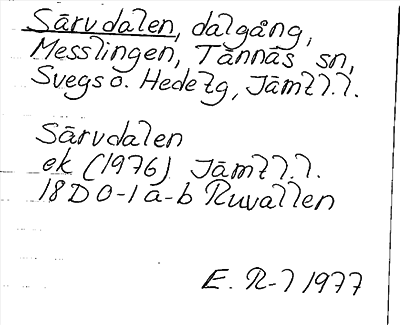 Särvdalen, dalgång,
Messlingen, Tännäs sn,
Svegs o. Hede tg, Jämtl.l.
Särvdalen
ek (1976) Jämtl.l.
18D 0-1 a-b Ruvallen
E. R-l 1977